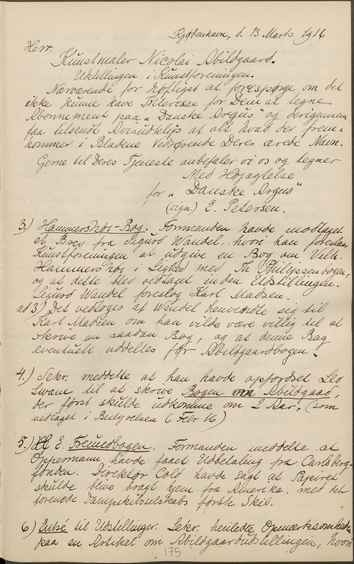 Kjøbenhavn, d. 13 Marts 1916
Herr
Kunstmaler Nicolai Abildgaard.
Udstillingen i Kunstforeningen.
Nærværende for høfligst at forespørge om det
ikke kunne have Interesse for Dem at tegne
Abonnement paa "Danske Argus" og derigennem
faa tilsendt Avisudklip af alt hvad der frem-
kommer i Bladene vedrørende Deres ærede Navn.
Gerne til Deres Tjeneste anbefaler vi os og tegner
Med Højagtelse
for "Danske Argus"
(sign) E. Petersen.
3) Hammershøi-Bog. Formanden havde modtaget
et Brev fra Sigurd Wandel, hvori han foreslog
Kunstforeningen at udgive en Bog om Vilh.
Hammershøi i Lighed med Th. Philipsenbogen,
og at dette blev vedtaget inden Udstillingen.
Sigurd Wandel foreslog Karl Madsen.
ad 3) Det vedtoges at Wandel henvendte sig til
Karl Madsen om han vilde være villig til at
skrive en saadan Bog, og at denne Bog
eventuelt uddeltes før Abildgaardbogen.
4) Sekr. meddelte at han havde opfordret Leo
Swane til at skrive Bogen om Abildgaard,
der først skulde udkomme om 2 Aar. (som
vedtaget i Bestyrelsen 6 Febr 16)
5) Formanden meddelte at
Oppermann havde faaet Udbetaling fra Carlsberg-
fondet. Direktør Cold havde sagt at Papiret
skulde blive bragt hjem fra Amerika med det
forenede Dampskibsselskabs første Skib.
6) Entré til Udstillinger. Sekr. henledte Opmærksomheden
paa en Artikel om Abildgaardudstillingen, hvori
175